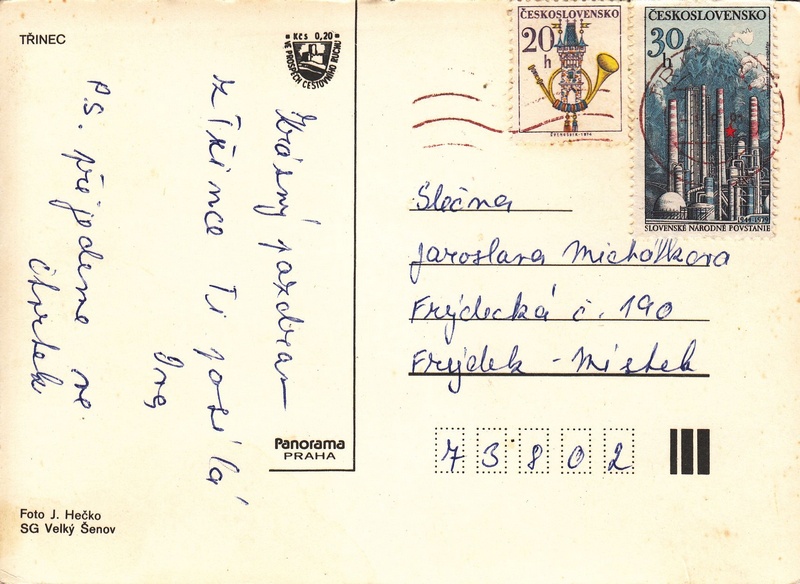 TŘINEC
Kčs 0,20
VE PROSPĚCH CESTOVNÍHO RUCHU
Krásný pozdrav
z Třince Ti posílá
P.S. přijedeme ve
čtvrtek
Panorama
PRAHA
Foto J. Hečko
SG Velký Šenov
ČESKOSLOVENSKO
20 h
ČESKOSLOVENSKO
30 h
1944-1979
SLOVENSKÉ NÁRODNÉ POVSTANIE
Slečna
Jaroslava Michálkova
Frýdecká č. 190
Frýdek - Místek
73802